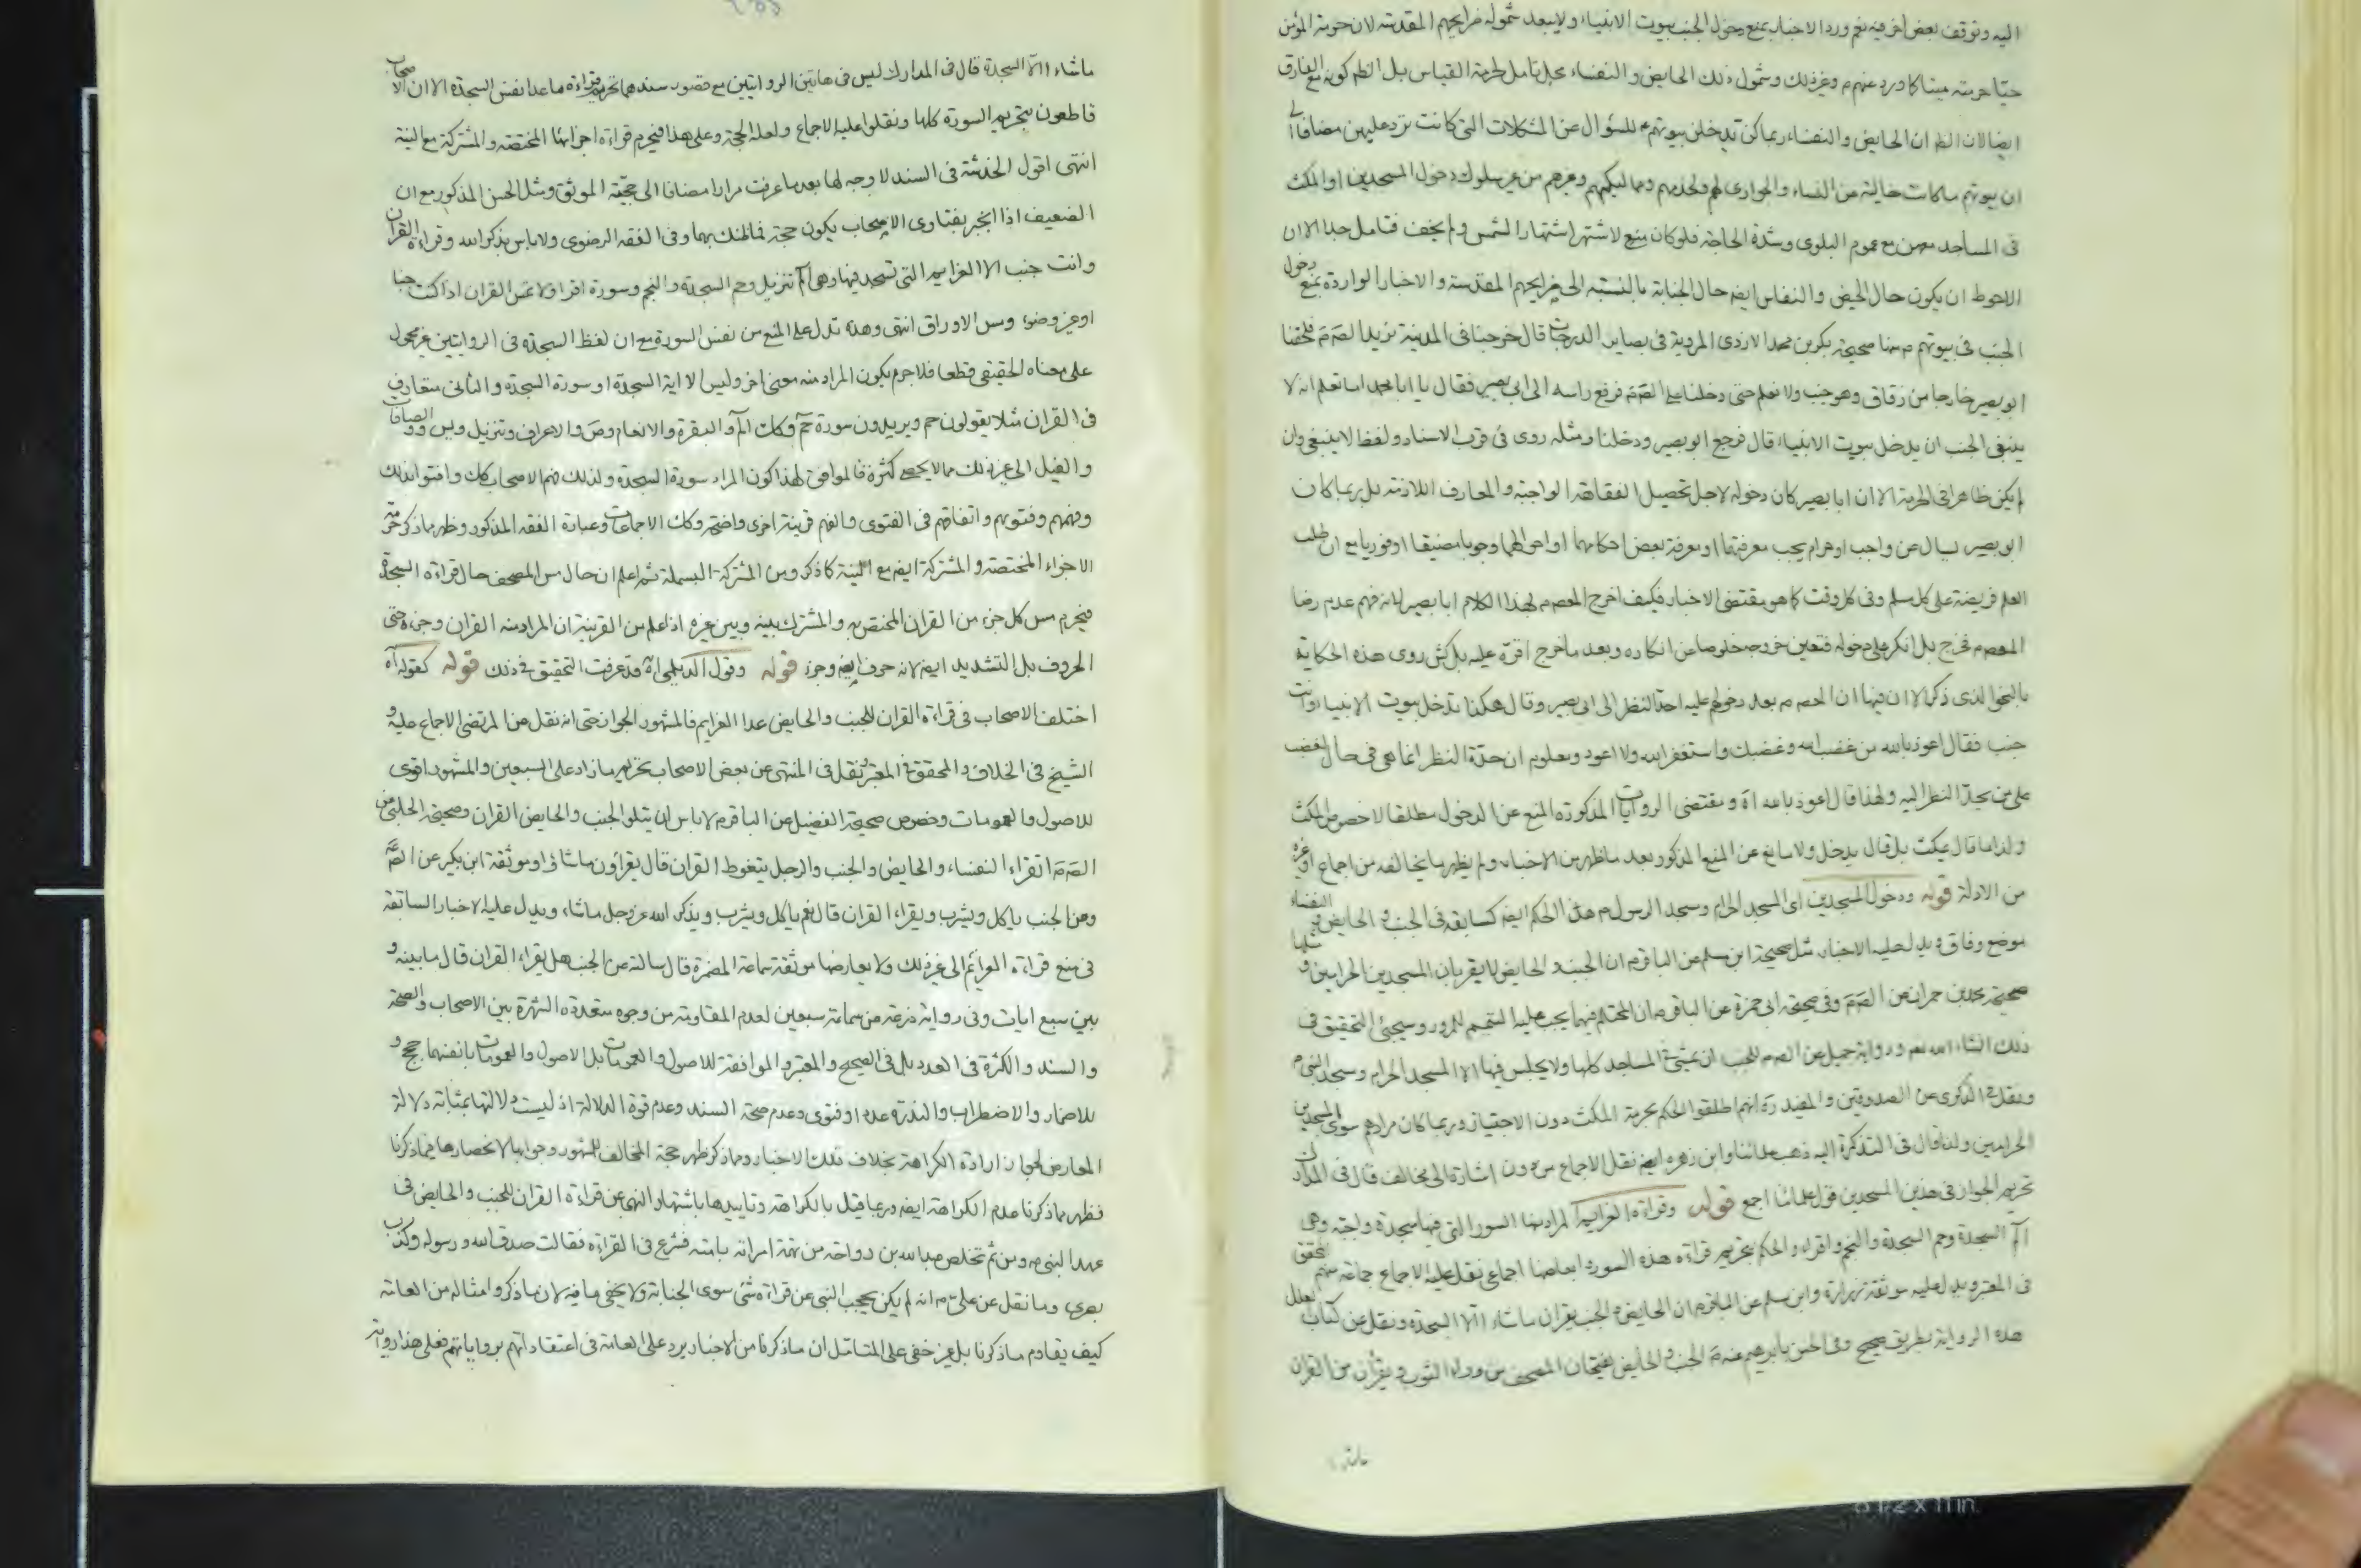 اليه وتوقف بعض اخر فيه نعم ورد الاخبار بمنع دخول الجنب بيوت الانبياء ولا يبعد شموله ضرايحهم المقدسة لان حرمة المؤمن
حيا حرمته ميتا كما ورد عنهم م وغير ذلك وشمول ذلك الحايض والنفساء محل تامل لحرمة القياس بل الظم كونه مع الفارق
ايضا لان الظم ان الحايض والنفساء ربما كن تدخلن بيوتهم للسؤال عن المشكلات التى كانت ترد عليهن مضافا الى
ان بيوتهم ما كانت خالية عن النساء والجوارى لهم ولخدمهم ومماليكهم وغيرهم من غير سلوك دخول المسجدين او المكث
فى المساجد معهن مع عموم البلوى وشدة الحاجة فلو كان منع لاشتهر اشتهار الشمس ولم يخف فتامل جدا الا ان
الاحوط ان يكون حال الحيض والنفاس ايضه حال الجنابة بالنسبة الى ضرايحهم المقدسة والاخبار الواردة بمنع دخول
الجنب فى بيوتهم م منها صحيحة بكر بن محمد الازدى المروية فى بصاير الدرجات قال خرجنا فى المدينة نريد الصم م فلحقنا
ابو بصير خارجا من زقاق وهو جنب ولا نعلم حتى دخلنا على الصم م فرفع راسه الى ابى بصير فقال يا ابا محمد اما تعلم انه لا
ينبغى الجنب ان يدخل بيوت الانبياء قال فرجع ابو بصير ودخلنا ومثله روى فى قرب الاسناد ولفظ لا ينبغى وان
لم يكن ظاهرا فى الحرمة الا ان ابا بصير كان دخوله لاجل تحصيل الفقاهة الواجبة والمعارف اللازمة بل ربما كان
ابو بصير يسال عن واجب او حرام يجب معرفتهما او معرفة بعض احكامهما او احوالهما وجوبا مضيقا او فوريا مع ان طلب
العلم فريضة على كل مسلم وفى كل وقت كما هو مقتضى الاخبار فكيف اخرج المعصوم م بهذا الكلام ابا بصير لانه فهم عدم رضا
المعصوم م فخرج بل انكر على دخوله فتعين خروجه خلوصا من انكاره وبعد ما خرج اقره عليه بل كش روى هذه الحكاية
بالنحو الذى ذكر الا ان فيها ان المعصوم م بعد دخولهم عليه احد النظر الى ابى بصير وقال هكذا تدخل بيوت الانبياء وانت
جنب فقال اعوذ بالله من غضب الله وغضبك واستغفر الله ولا اعود ومعلوم ان حدة النظر انما هى فى حال الغضب
على من يحد النظر اليه ولهذا قال اعوذ بالله اه ومقتضى الروايات المذكورة المنع عن الدخول مطلقا لا خصوص المكث
ولذا ما قال يمكث بل قال يدخل ولا مانع عن المنع المذكور بعد ما ظهر من الاخبار ولم يظهر ما يخالفه من اجماع او غيره
من الادلة قوله ودخول المسجدين اى المسجد الحرام ومسجد الرسول م هذا الحكم ايضه كسابقه فى الجنب والحايض والنفساء
موضع وفاق ويدل عليه الاخبار مثل صحيحة ابن مسلم عن الباقر م ان الجنب والحايض لا يقربان المسجدين الحرامين ومثلها
صحيحة محمد بن حمران عن الصم م وفى صحيحة ابى حمزة عن الباقر م ان المحتلم فيهما يجب عليه التيمم للمرور وسيجئ التحقيق فى
ذلك انشاء الله تعم ورواية جميل عن الصم م للجنب ان يمشى فى المساجد كلها ولا يجلس فيها الا المسجد الحرام ومسجد النبى م
ونقل فى الذكرى عن الصدوقين والمفيد ره انهم اطلقوا الحكم بحرمة المكث دون الاجتياز وربما كان مرادهم سوى المسجدين
الحرامين ولذا قال فى التذكرة اليه ذهب علمائنا وابن زهره ايضه نقل الاجماع من دون اشارة الى مخالف قال فى المدارك
تحريم الجواز فى هذين المسجدين قول علمائنا اجمع قوله وقراءة العزايم المراد بها السور التى فيها سجدة واجبة وهى
الم السجدة وحم السجدة والنجم واقراء والحكم بتحريم قراءة هذه السور وابعاضها اجماعى نقل عليه الاجماع جماعة منهم المحقق
فى المعتبر ويدل عليه موثقة زرارة وابن مسلم عن الباقر م ان الحايض والجنب يقران ما شاء الا السجدة ونقل عن كتاب العلل
هذه الرواية بطريق صحيح وفى الحسن بابرهيم عنه م الجنب والحايض يفتحان المصحف من وراء الثوب ويقران من القران
ما شاء
ما شاء الا السجدة قال فى المدارك ليس فى هاتين الروايتين مع قصور سندهما تحريم قراءة ما عدا نفس السجدة الا ان الاصحاب
قاطعون بتحريم السورة كلها ونقلوا عليه الاجماع ولعله الحجة وعلى هذا فيحرم قراءة اجزائها المختصة والمشتركة مع النية
انتهى اقول الخدشة فى السند لا وجه لها بعد ما عرفت مرارا مضافا الى حجية الموثق ومثل الحسن المذكور مع ان
الضعيف اذا انجبر بفتاوى الاصحاب يكون حجة فما ظنك بهما وفى الفقه الرضوى ولا باس بذكر الله وقراءة القران
وانت جنب الا العزايم التى تسجد فيها وهى الم تنزيل وحم السجدة والنجم وسورة اقرا ولا تمس القران اذا كنت جنبا
او غير وضوء ومس الاوراق انتهى وهذه تدل على المنع من نفس السورة مع ان لفظ السجدة فى الروايتين غير محمول
على معناه الحقيقى قطعا فلا جرم يكون المراد منه معنى اخر وليس الا اية السجدة او سورة السجدة والثانى متعارف
فى القران مثلا يقولون حم ويريدون سورة حم وكذا الم والبقرة والانعام وص والاعراف وتنزيل ويس والصافات
والفيل الى غير ذلك مما لا يحصى كثرة فالموافق لهذا كون المراد سورة السجدة ولذلك فهم الاصحاب كك وافتوا بذلك
وفهمهم وفتويهم واتفاقهم فى الفتوى والفهم قرينة اخرى واضحة وكذا الاجماعات وعبارة الفقه المذكور وظهر مما ذكر حرمة
الاجزاء المختصة والمشتركة ايضه مع النية كما ذكر ومن المشتركة البسملة ثم اعلم ان حال مس المصحف حال قراءة السجدة
فيحرم مس كل جزء من القران المختص به والمشترك بينه وبين غيره اذا علم من القرينة ان المراد منه القران وجزءه حتى
الحروف بل التشديد ايضه لانه حرف ايضه وجزء قوله وقول الديلمى اه قد عرفت التحقيق فى ذلك قوله كقوله اه
اختلف الاصحاب فى قراءة القران للجنب والحايض عدا العزايم فالمشهور الجواز حتى انه نقل عن المرتضى الاجماع عليه و
الشيخ فى الخلاف والمحقق فى المعتبر ونقل فى المنتهى عن بعض الاصحاب تحريم ما زاد على السبعين والمشهور اقوى
للاصول والعمومات وخصوص صحيحة الفضيل عن الباقر م لا باس ان يتلو الجنب والحايض القران وصحيحة الحلبى عن
الصم م اتقراء النفساء والحايض والجنب والرجل يتغوط القران قال يقراون ما شاؤا وموثقة ابن بكير عن الصم م
وعن الجنب ياكل ويشرب ويقراء القران قال نعم ياكل ويشرب ويذكر الله عز وجل ما شاء ويدل عليه الاخبار السابقة
فى منع قراءة العزائم الى غير ذلك ولا يعارضها موثقة سماعة المضمرة قال سالته عن الجنب هل يقراء القران قال ما بينه و
بين سبع ايات وفى رواية زرعة عن سماعة سبعين لعدم المقاومة من وجوه متعددة الشهرة بين الاصحاب والصحة
والسند والكثرة فى العدد بل فى الصحيح والمعتبر والموافقة للاصول والعمومات بل الاصول والعمومات بانفسهما حجج و
للاضمار والاضطراب والندرة عددا وفتوى وعدم صحة السند وعدم قوة الدلالة اذ ليست دلالتها بمثابة دلالة
المعارض لجواز ارادة الكراهة بخلاف تلك الاخبار ومما ذكر ظهر حجة المخالف للمشهور وجوابها لانحصارها فيما ذكرنا
فظهر مما ذكرنا عدم الكراهة ايضه وربما قيل بالكراهة وتاييدها باشتهار النهى عن قراءة القران للجنب والحايض فى
عهد النبى م ومن ثم تخلص عبد الله بن رواحة من تهمة امراته بامته فشرع فى القراءة فقالت صدق الله ورسوله وكذب
بصرى وما نقل عن على م انه لم يكن يحجب النبى عن قراءة شئ سوى الجنابة ولا يخفى ما فيه لان ما ذكر وامثاله من العامة
كيف يقاوم ما ذكرنا بل غير خفى على المتامل ان ما ذكرنا من الاخبار يرد على العامة فى اعتقاداتهم برواياتهم فعلى هذا رواية
8 1/2 x 11 in.